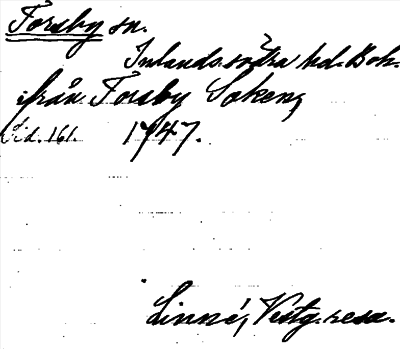 Forsby sn.
Inlands södra hd. Boh.
från Forsby Soken,
Sid. 161. 1747.
Linné, Vestg. resa.